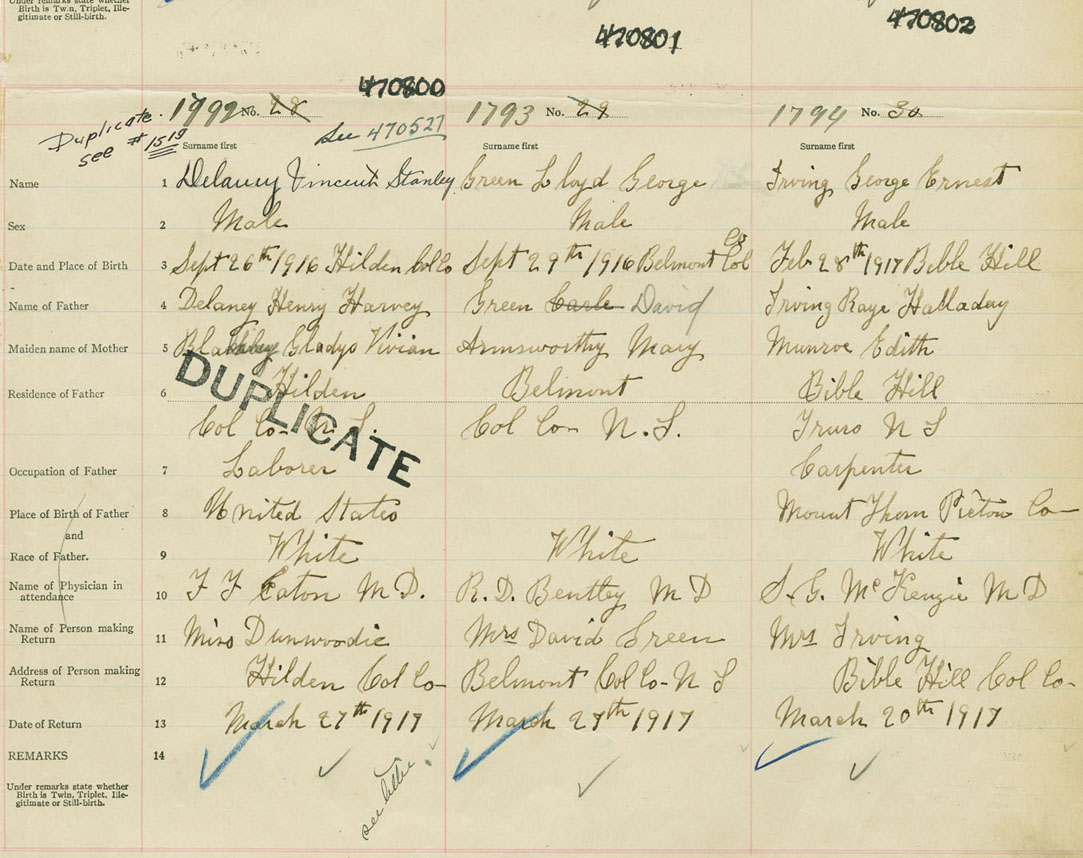 Under remarks state whether
Birth is Twin, Triplet, Ille-
gitimate or Still-birth.
470800 470801 470802
1792 No. 28 1793 No. 29 1794 No. 30
Duplicate. see # 1519
see 470527
Surname first Surname first Surname first
Name 1 Delaney Vincent Stanley Green Lloyd George Irving George Ernest
Sex 2 Male Male Male
Date and Place of Birth 3 Sept 26th/1916 Hilden Col Co Sept 29th/1916 Belmont Col Co Feb 28th 1917 Bible Hill
Name of Father 4 Delaney Henry Harvey Green Carle David Irving Raye Halladay
Maiden name of Mother 5 Gladys Vivian Armsworthy Mary Munroe Edith
DUPLICATE
Residence of Father 6 Hilden Belmont Bible Hill
Col Co- N.S. Col Co- N.S. Truro N S
Occupation of Father 7 Laborer Carpenter
Place of Birth of Father 8 United States Mount Thom Pictou Co-
and
Race of Father. 9 White White White
Name of Physician in
attendance 10 F F Eaton M D. R. D. Bentley M D S. G. McKenzie M D
Name of Person making
Return 11 Miss Dunwoodie Mrs David Green Mrs Irving
Address of Person making
Return 12 Hilden Col Co- Belmont Col Co- N S Bible Hill Col Co-
Date of Return 13 March 27th 1917 March 27th 1917 March 20th 1917
REMARKS 14
see letter
Under remarks state whether
Birth is Twin, Triplet, Ille-
gitimate or Still-birth.